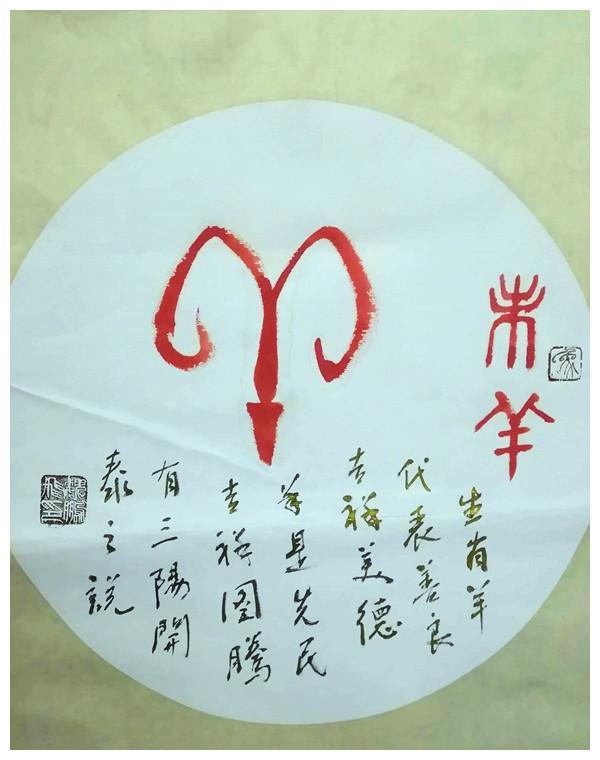 未羊
生肖羊
代表善良
吉祥美德
羊是先民
吉祥图腾
有三陽開
泰之説